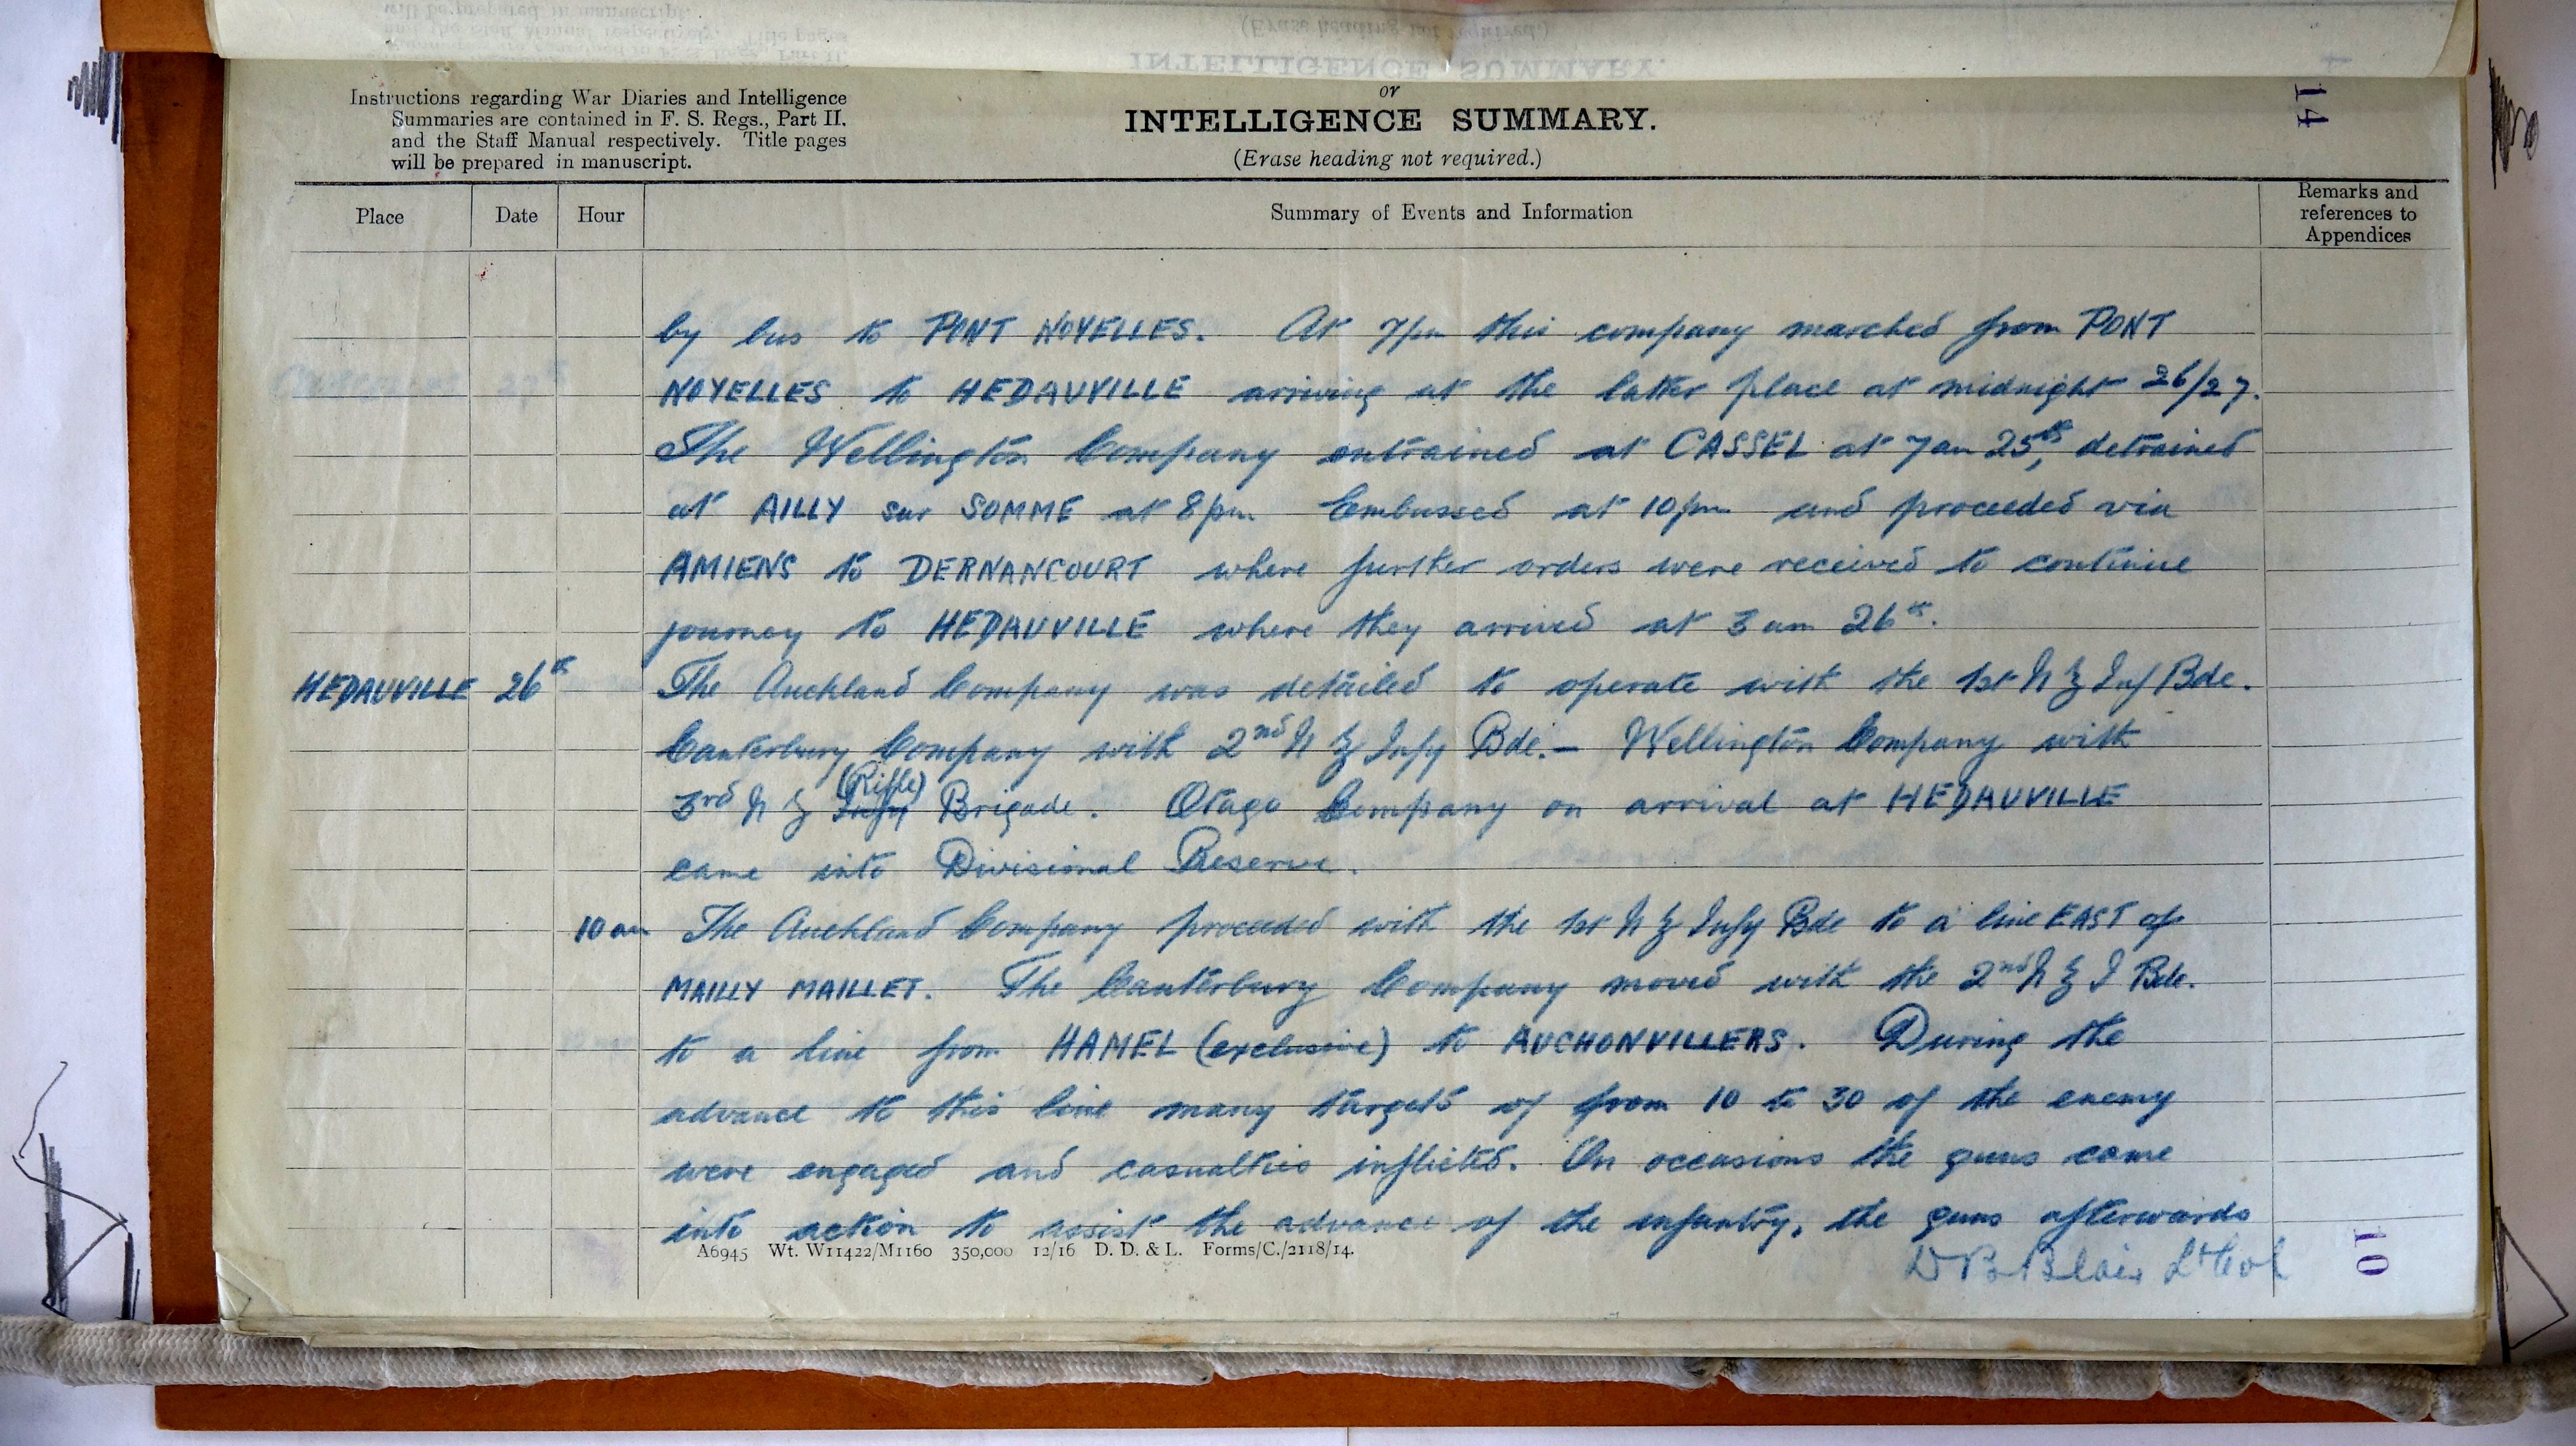 Instructions regarding War Diaries and Intelligence
Summaries are contained in F. S. Regs., Part II.
and the Staff Manual respectively. Title pages
will be prepared in manuscript.
or
INTELLIGENCE SUMMARY.
(Erase heading not required.)
14
Place Date Hour Summary of Events and Information Remarks and
references to
Appendices
by bus to PONT NOYELLES. At 7pm this company marched from PONT
NOYELLES to HEDAUVILLE arriving at the latter place at midnight 26/27.
The Wellington Company entrained at CASSEL at 7am 25th, detrained
at AILLY sur SOMME at 8pm Embussed at 10pm and proceeded via
AMIENS to DERNANCOURT where further orders were received to continue
journey to HEDAUVILLE where they arrived at 3am 26th.
HEDAUVILLE 26th The Auckland Company was detailed to operate with the 1st N Z Inf Bde.
Canterbury Company with 2nd N Z Infy Bde. - Wellington Company with
3rd N Z Infy (Rifle) Brigade. Otago Company on arrival at HEDAUVILLE
came into Divisional Reserve.
10 am The Auckland Company proceeded with the 1st N Z Infy Bde to a line EAST of
MAILLY MAILLET. The Canterbury Company moved with the 2nd N Z I Bde.
to a line from HAMEL (exclusive) to AUCHONVILLERS. During the
advance to this line many targets of from 10 to 30 of the enemy
were engaged and casualties inflicted. On occasions the guns came
into action to assist the advance of the infantry, the guns afterwards
A6945 Wt. W11422/M1160 350,000 12/16 D. D. & L. Forms/C./2118/14.
D B Blair Lt Col
10